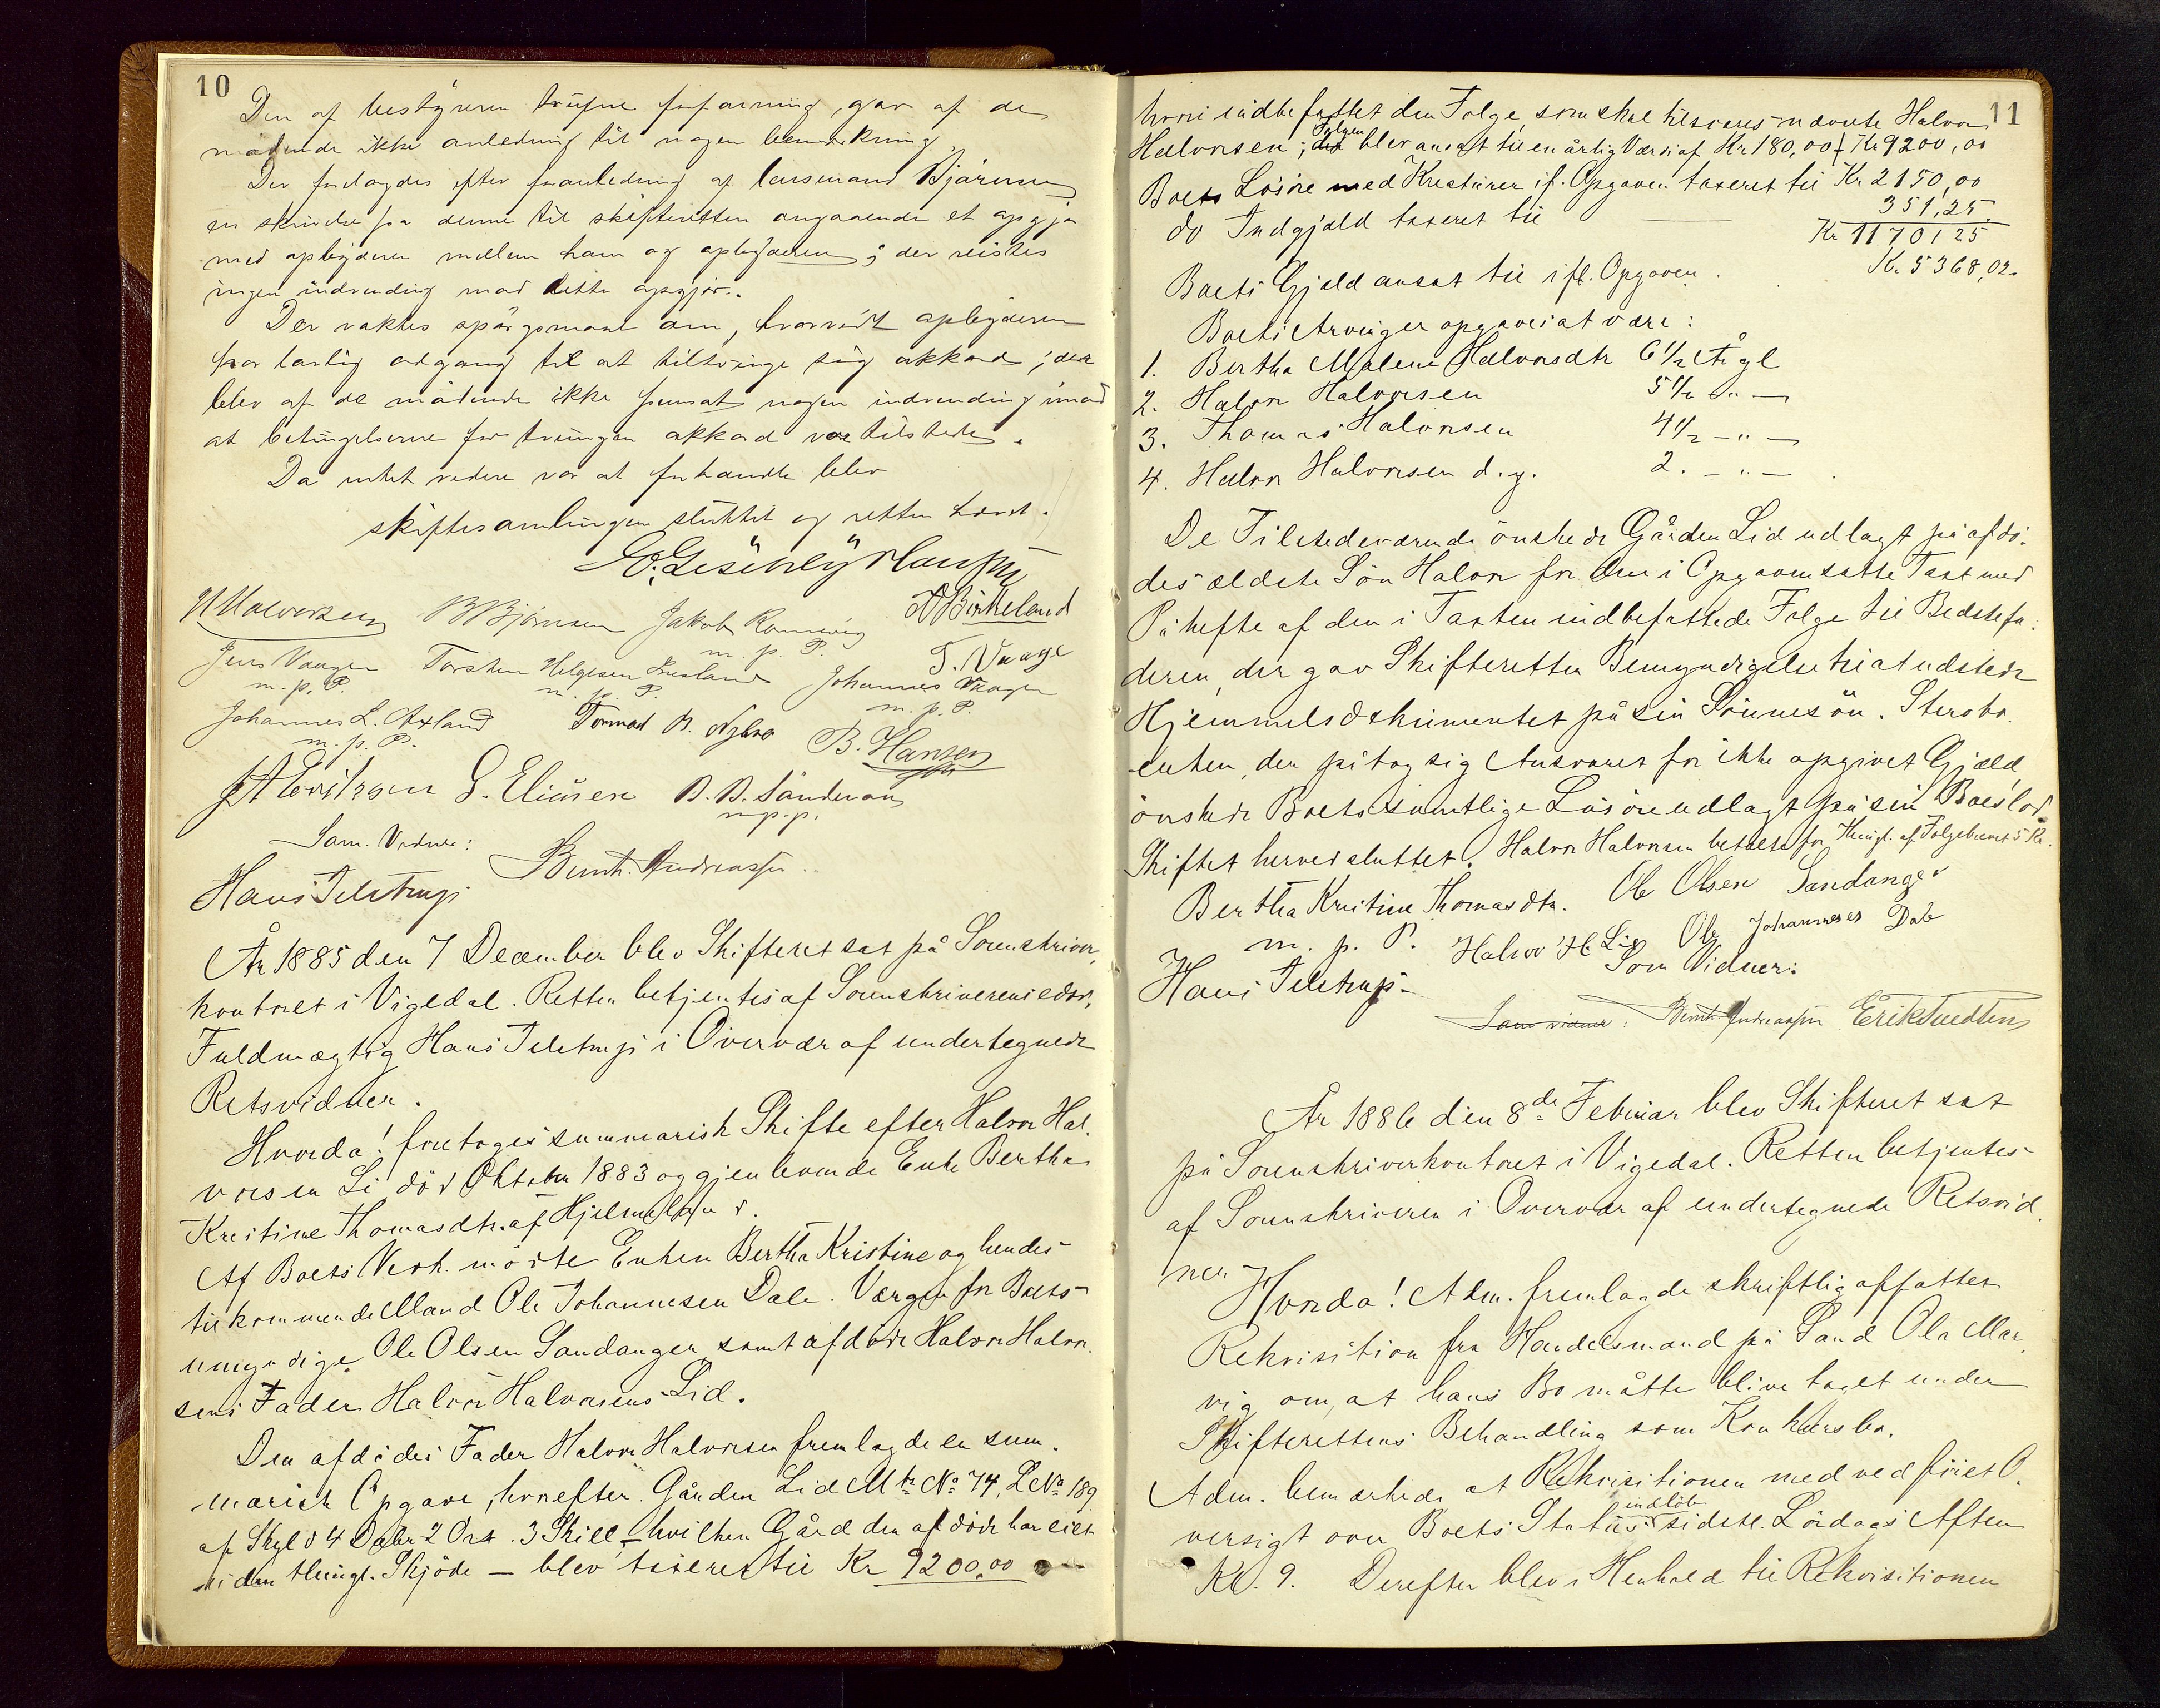 10
Den af bestyreren trufne foranstning gav af de
mødende ikke anledning til nogen bemerkning.
Der fremlagdes efter foranledning af lensmand Bjørnsen
en skrivelse fra denne til skifteretten angaaende et opgjør
med opbyderen mellem ham og opbyderen; der reistes
ingen indvending mod dette opgjør.
Der vaktes spørgsmaal om, hvorvidt opbyderen
har lovlig adgang til at tiltvinge sig akkord; der
blev af de mødende ikke fremsat nogen indvending imod
at betingelserne for tvungen akkord var tilstede.
Da intet videre var at forhandle blev
skiftesamlingen sluttet og retten hævet.
H Halvorsen B Bjørnsen Jakob m. p. P. A Birkeland
Jens Vaagen m. p. P. Torsten Helgesen m. p. P. Johannes Vaagen m. p. P. T. Vaage
Johannes L. Axland m. p. P. Tormod B. B. Hansen
G. Eliasen B. B. Sandvon m. p. p.
Som Vidner:
Hans Telstrup Bernth. Andreassen.
År 1885 den 7 December blev Skifteret sat på Sorenskriver-
kontoret i Vigedal. Retten betjentes af Sorenskriverens edsv.
Fuldmægtig Hans Telstrup i Overvær af undertegnede
Retsvidner.
Hvorda! foretoges summarisk Skifte efter Halvor Hal-
vorsen Li død Oktober 1883 og gjenlevende Enke Bertha
Kristine Thomasdtr. af Hjelmeland.
Af Boets Vedk. mødte Enken Bertha Kristine og hendes
tilkommende Mand Ole Johannesen Dale. Værgen for Boets
umyndige Ole Olsen Sandanger samt afdøde Halvor Halvor-
sens Fader Halvor Halvorsens Lid.
Den afdødes Fader Halvor Halvorsen fremlagde en sum-
marisk Opgave, hvorefter Gården Lid Mtr No 74, L No 189
af Skyld 4 Daler 2 Ort 3 Skill – hvilken Gård den afdøde har eiet
uden thingl. Skjøde – blev taxeret til Kr 9200,00
11
hvori indbefattet den Følge, som skal tilsvares nævnte Halvor
Halvorsen; Følgen blev ansat til en årlig Værdi af Kr 180,00 Kr 9200,00
Boets Løsøre med Kreaturer if. Opgaven taxeret til Kr 2150,00
do Indgjæld taxeret til 351,25
Kr 11701 25
Boets Gjæld ansat til ifl. Opgaven. Kr. 5368,02
Boets Arvinger opgaves at være:
1. Bertha Malene Halvorsdtr 6 1/2 År gl
2. Halvor Halvorsen 5 1/2 - " -
3. Thomas Halvorsen 4 1/2 - " -
4. Halvor Halvorsen d. y. 2. - " -
De Tilstedeværende ønskede Gården Lid udlagt på afdø-
des ældste Søn Halvor for den i Opgaven satte Taxt med
Påhefte af den i Taxten indbefattede Følge til Bedstefa-
deren, der gav Skifteretten Bemyndigelse til at udstede
Hjemmelsdokumentet på sin Sønnesøn. Sterbo-
enken, der påtog sig Ansvaret for ikke opgivet Gjæld,
ønskede Boets samtlige Løsøre udlagt på sin Boeslod.
Skiftet herved sluttet. Halvor Halvorsen betalte for Thingl. af Følgebrevet 5 Kr.
Bertha Kristine Thomasdtr. Ole Olsen Sandanger
m. p. P. Halvor H Li Ole Johanneses Dale
Hans Telstrup. Som Vidner:
Som vidner: Bernth Andreassen Erik Tuedten
År 1886 den 8de Februar blev Skifteret sat
på Sorenskriverkontoret i Vigedal. Retten betjentes
af Sorenskriveren i Overvær af undertegnede Retsvid-
ner
Hvorda! Adm. fremlagde skriftlig affattet
Rekvisition fra Handelsmand på Sand Ola Mar-
vig om, at hans Bo måtte blive taget under
Skifterettens Behandling som Konkursbo.
Adm. bemærkede at Rekvisitionen med vedføiet O-
versigt over Boets Status indløb sidstl. Lørdags Aften
Kl. 9. Derefter blev i Henhold til Rekvisitionen